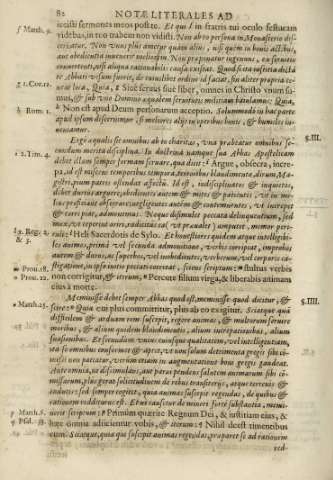 82 NOTÆ LITERALES AD
iecisti sermones meos post te. Et qui in fratris tui oculo festucam
videbas, in tuo trabem non vidisti. Non ab eo persona in Monasterio dis-
cernatur. Non unus plus ametur quàm alius, nisi quem in bonis actibus,
aut obedientia invenerit meliorem. Non præponatur ingenuus, ex servitio
convertenti, nisi aliqua rationabilis causa existat. Quod si ita iustitia dictan-
te Abbati visum fuerit, & de cuiuslibet ordine id faciat, sin aliter propria te-
neat loca, Quia, Sive servus sive liber, omnes in Christo unum su-
mus, & sub uno Domino æqualem servitutis militiam baiulamus: Quia,
Non est apud Deum personarum acceptio. Solummodo in hac parte
apud ipsum discernimur, si meliores aliis in operibus bonis, & humiles in-
veniamur.
Ergo æqualis sit omnibus ab eo charitas, una præbeatur omnibus se-
cundum merita disciplina. In doctrina namque sua Abbas Apostolicam
debet illam semper formam servare, qua dicit: Argue, obsecra, incre-
pa, id est miscens temporibus tempora, terroribus blandimenta, dirum, Ma-
gistri, pium patris ostendat affectu. Id est, indisciplinatos & inquietos,
debet durius arguere, obedientes autem & mites & patientes, ut in me-
lius proficiant obsecrare, negligentes autem & contemnentes, ut increpet
& corripiat, admonemus. Neque dissimulet peccata delinquentium, sed
mox, ut coeperint oriri, radicitus ea, ut prævalet, amputet, memor peri-
culi Heli Sacerdotis de Sylo. Et honestiores quidem atque intelligibi-
les animas, prima vel secunda admonitione verbis corripiat, improbos
autem & duros, ac superbos, vel inobedientes, verberum, vel corporis ca-
stigatione, in ipso initio peccati coerceat, sciens scriptum: stultus verbis
non corrigitur, & iterum, Percute filium virga, & liberabis animam
eius à morte.
Meminisse debet semper Abbas quod est, meminisse quod dicitur, &
scire: Quia cui plus committitur, plus ab eo exigitur. Sciatque quàm
difficilem & arduam rem suscepit, regere animas, & multorum servire
moribus, & alium quidem blandimentis, alium increpationibus, alium
suasionibus. Et secundum unius cuiusque qualitatem, vel intelligentiam,
ita se omnibus conformet & aptet, ut non solum detrimenta gregis sibi co-
missi non patiatur, verùm etiam in augmentatione boni gregis gaudeat.
Ante omnia, ne dissimulans, aut parvi pendens salutem animarum sibi co-
missarum, plus gerat solicitudinem de rebus transitoriis, atque terrenis &
caducis: sed semper cogitet, quia animas suscepit regendas, de quibus &
rationem redditurus est. Et ne causetur de minori forte substantia, memi-
nerit scriptum: Primùm quærite Regnum Dei, & iustitiam eius, &
hæc omnia adiicientur vobis, & iterum: Nihil deest timentibus
eum. Sciatque, quia qui suscipit animas regendas, præparet se ad rationem
red-
f Matth. 7.
g 1. Cor. 12.
h Rom. 2.
i 2. Tim. 4.
l 3. Reg. 2.
& 3.
m Prou. 18.
n Prou. 22.
o Matth. 25.
p Matth. 6.
q Psal. 33.
§. III.
§. IIII.